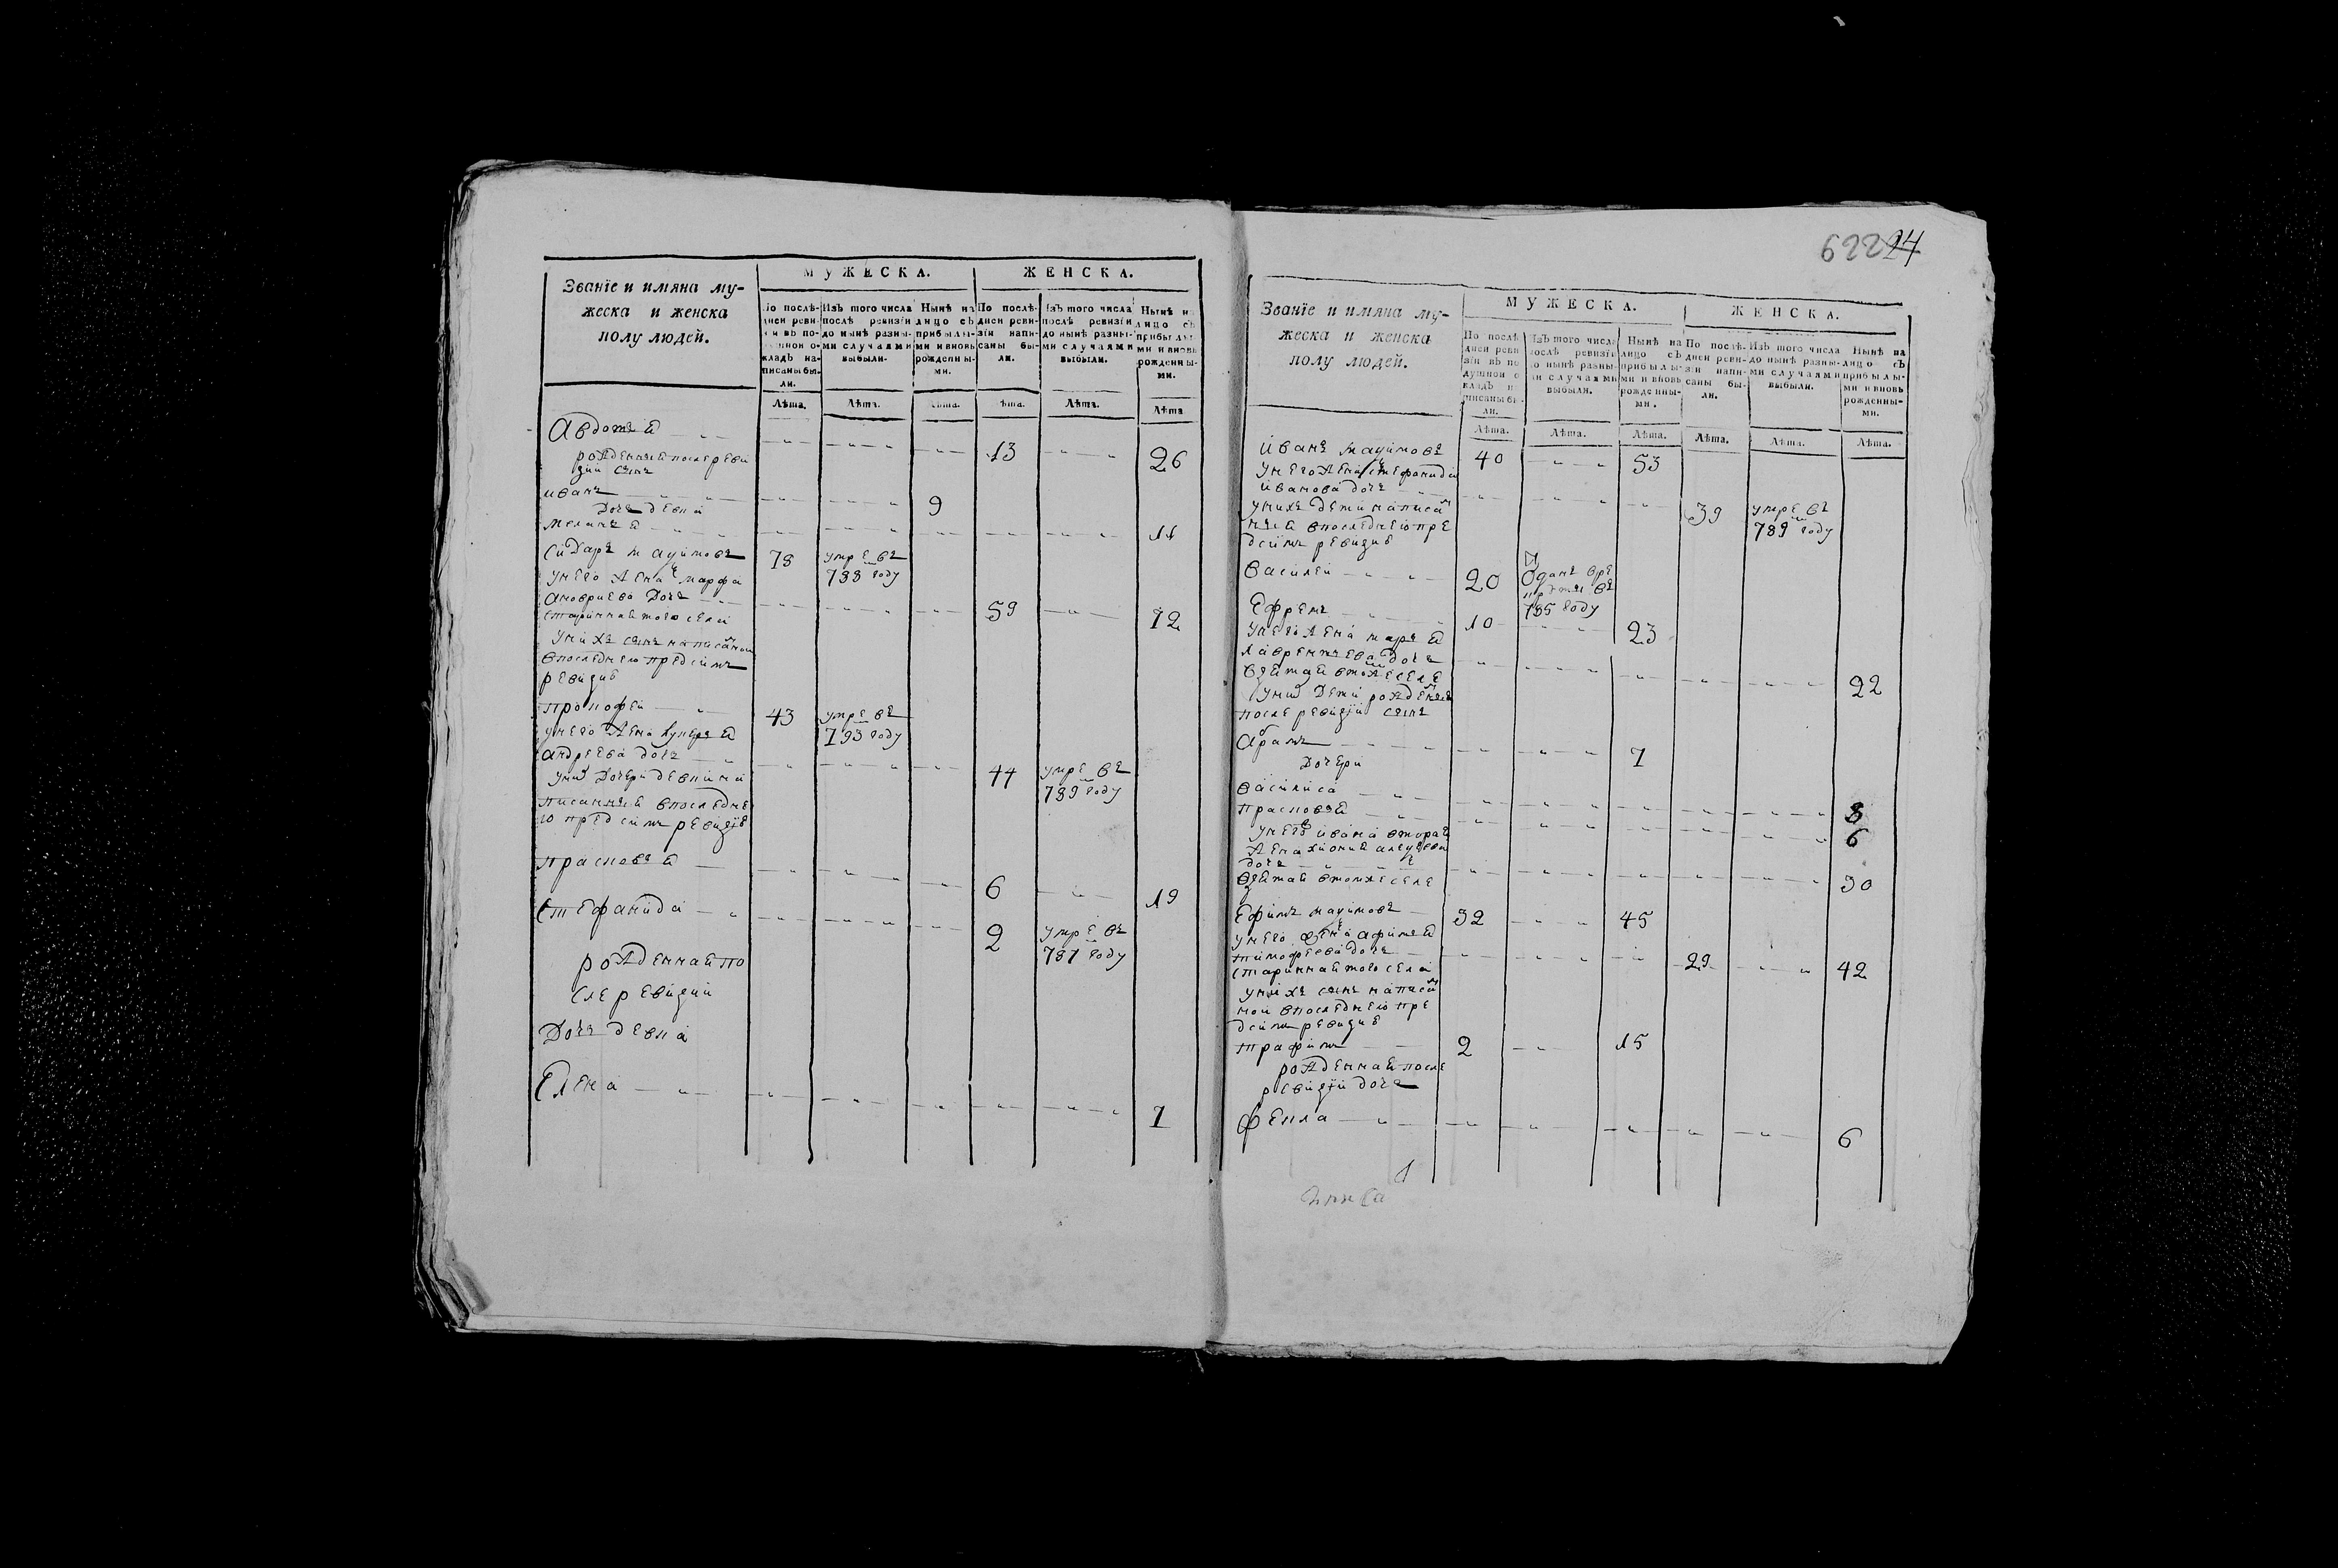 62224
Званїе и имяна му-
жеска и женска
полу людей.
МУЖЕСКА.
ЖЕНСКА.
По послѣ-
дней реви-
зїи въ по-
душной о-
кладъ на-
писаны бы-
ли.
Изъ того числа
послѣ ревизїи
до нынѣ разны-
ми случаями
выбыли.
Нынѣ на
лицо съ
прибылы-
ми и вновь
рожденны-
ми.
По послѣ-
дней реви-
зїи напи-
саны бы-
ли.
Изъ того числа
послѣ ревизїи
до нынѣ разны-
ми случаями
выбыли.
Нынѣ на
лицо съ
прибылы-
ми и вновь
рожденны-
ми.
Лѣта. Лѣта. Лѣта. Лѣта. Лѣта. Лѣта
Авдотья 13 26
рожденныя после реви
зии сынъ
иванъ 9
дочь девка
меланья 11
Сидаръ маѯимовъ 78 умре въ
788 году
у него жена марфа
дочь 59 72
старинная того села
у нихъ сынъ написанной
в последнею пред симъ
ревизiю
прокофей 43 умре въ
793 году
у него жена лукерья
андреева дочь 44 умре въ
789 году
у них дочери девки на
писанныя в последне
ю пред симъ ревизiю
прасковья 6 19
Стефанида 2 умре въ
787 году
рожденная по
сле ревизии
дочь девка
Елена 7
Званїе и имяна му-
жеска и женска
полу людей.
МУЖЕСКА.
ЖЕНСКА.
По послѣ-
дней реви-
зїи въ по-
душной о-
кладъ на-
писаны бы-
ли.
Изъ того числа
послѣ ревизїи
до нынѣ разны-
ми случаями
выбыли.
Нынѣ на
лицо съ
прибылы-
ми и вновь
рожденны-
ми.
По послѣ-
дней реви-
зїи напи-
саны бы-
ли.
Изъ того числа
до нынѣ разны-
ми случаями
выбыли.
Нынѣ на
лицо съ
прибылы-
ми и вновь
рожденны-
ми.
Лѣта. Лѣта. Лѣта. Лѣта. Лѣта. Лѣта.
иванъ маѯимовъ 40 53
у него жена стефанида
иванова дочь 39 умре въ
789 году
у нихъ дети написа
ныя в последнею пре
д симъ ревизiю
василей 20 Отданъ в ре
круты въ
785 году
Ефремъ 10 23
у него жена марья
лаврентьева дочь
взятая в томже селе 22
у них дети рожденныя
после ревизии сынъ
Абрамъ 7
дочери
василиса 8
прасковья 6
у него ивана вторая
жена
дочь
взятая в томже селе 30
Ефимъ маѯимовъ 32 45
у него жена афимья
тимофеева дочь 29 42
старинная того села
у нихъ сынъ написа
ной в последнею пре
д симъ ревизiю
трафимъ 2 15
рожденная после
ревизии дочь
фекла 6